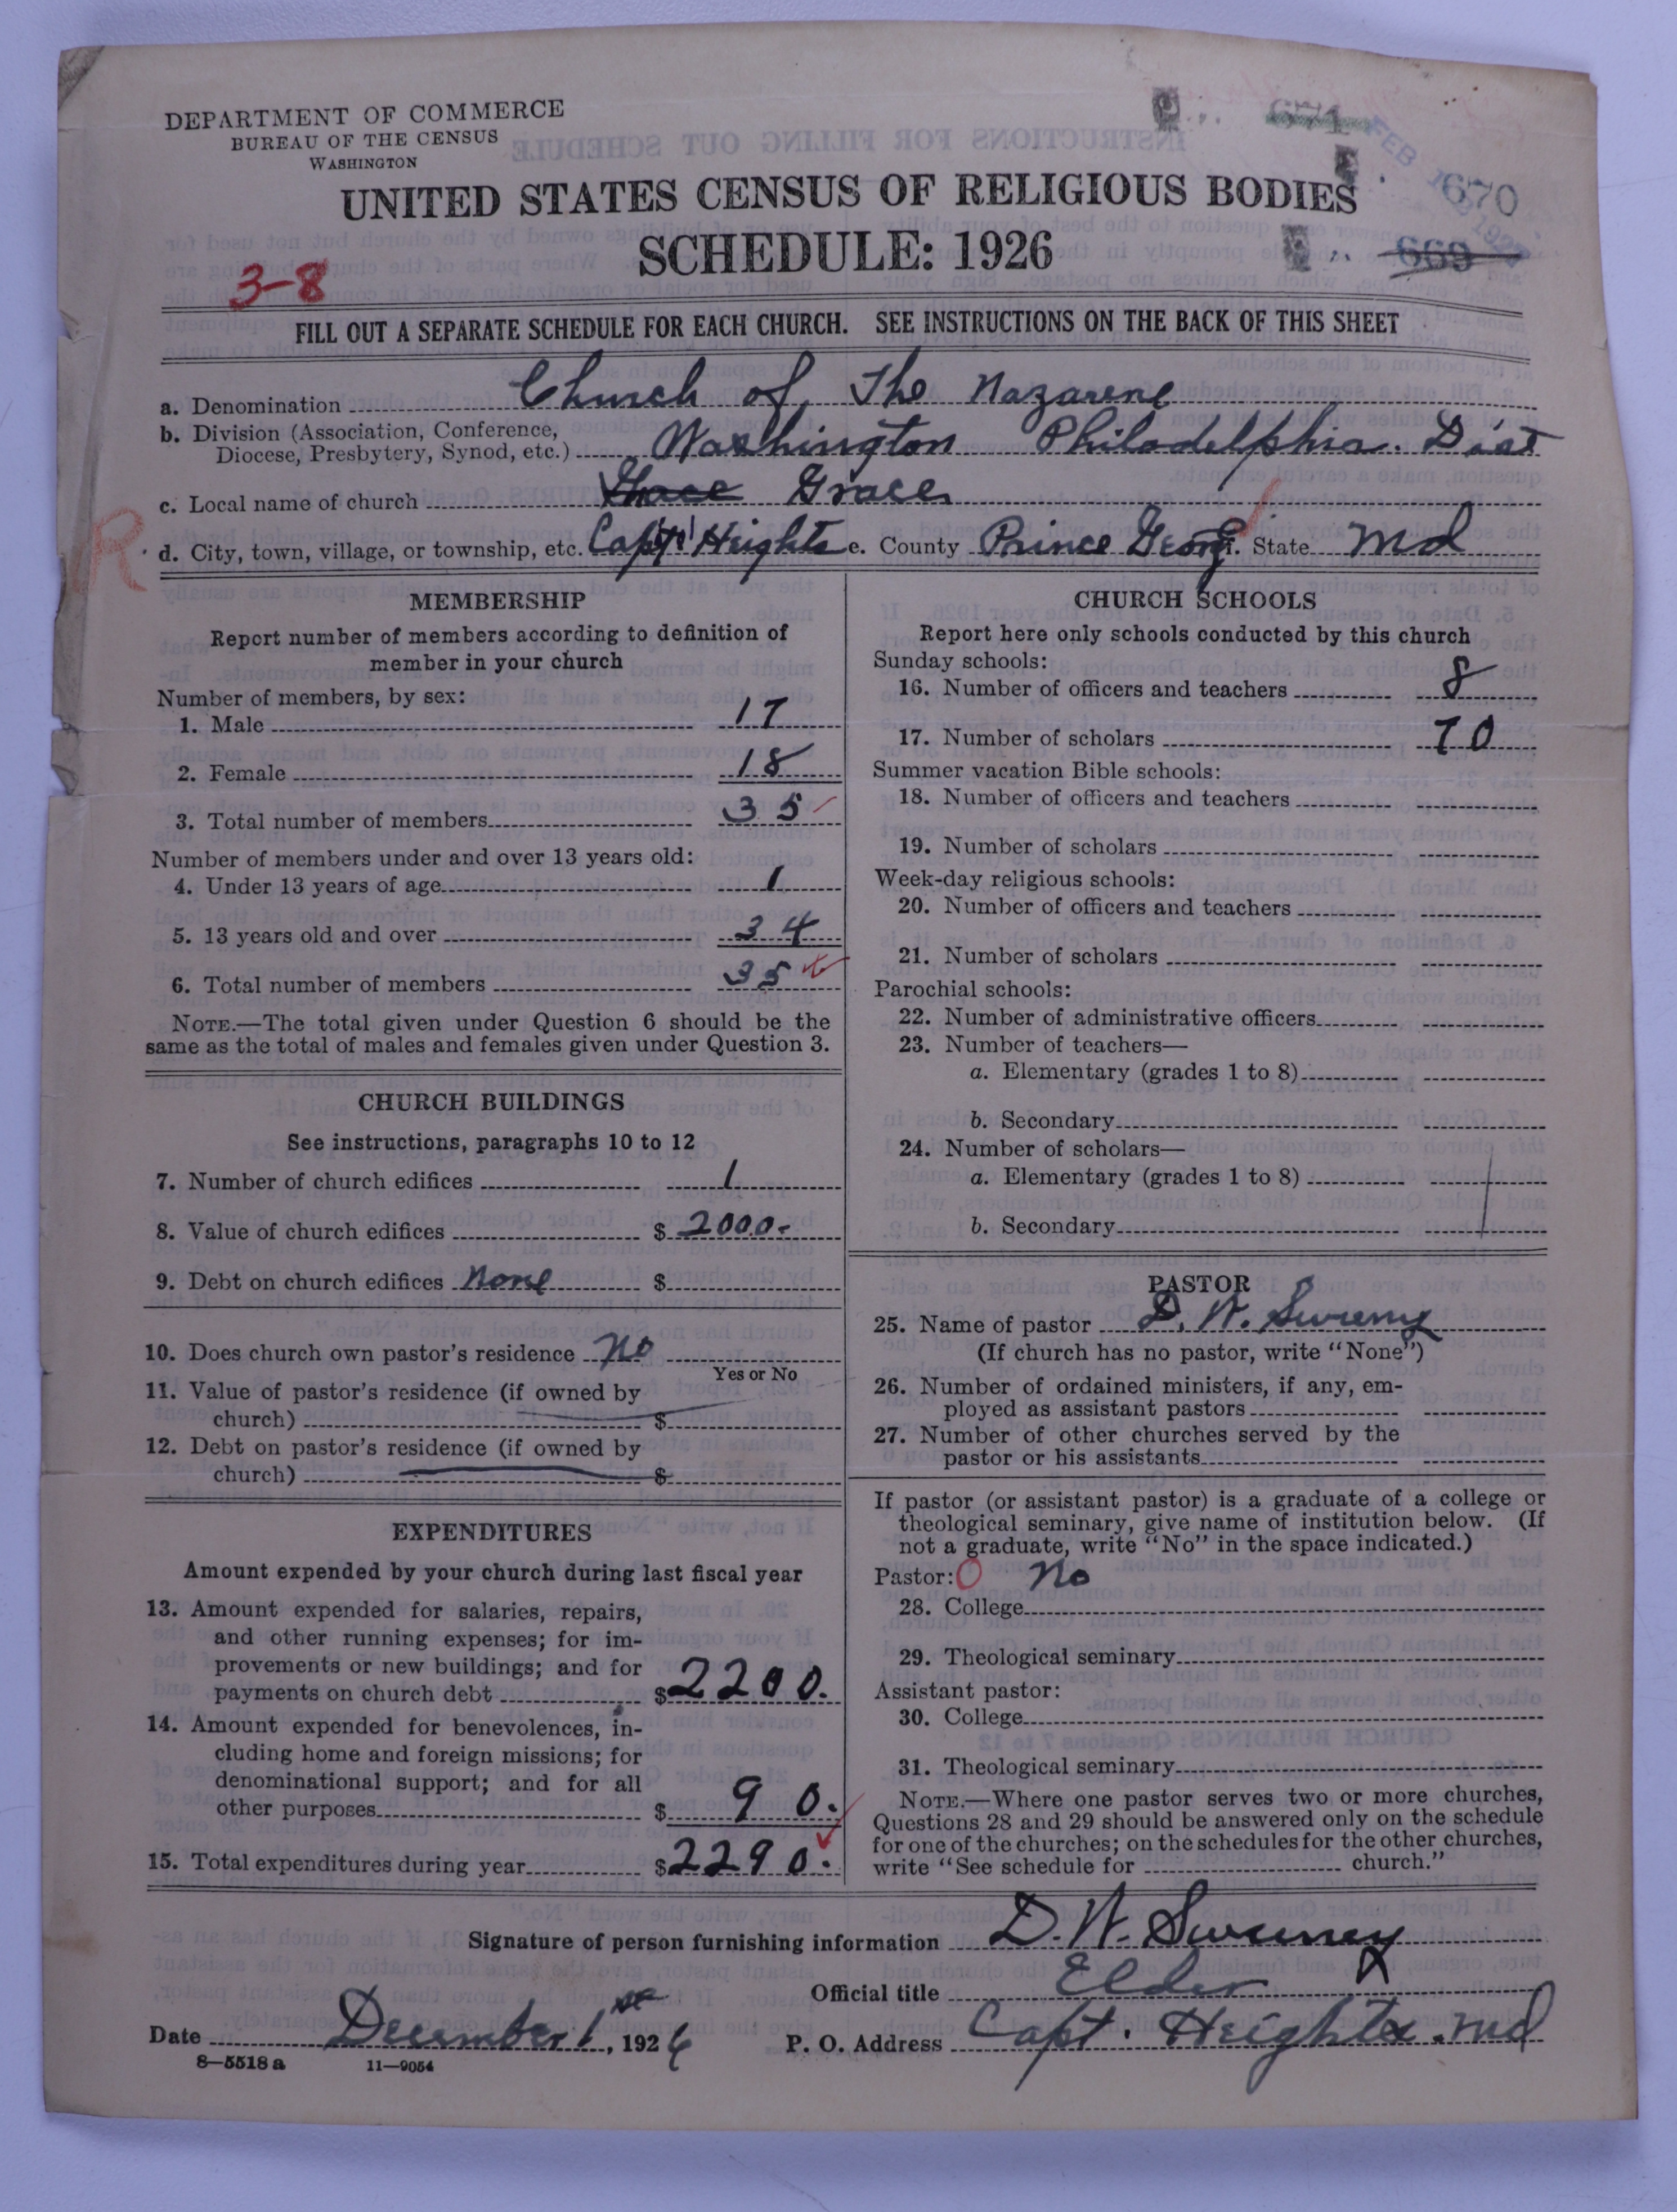 DEPARTMENT OF COMMERCE
BUREAU OF THE CENSUS
WASHINGTON
671
FEB
1927
670
669
UNITED STATES CENSUS OF RELIGIOUS BODIES
SCHEDULE: 1926
3-8
FILL OUT A SEPARATE SCHEDULE FOR EACH CHURCH. SEE INSTRUCTIONS ON THE BACK OF THIS SHEET
a. Denomination Church of The Nazarene
b. Division (Association, Conference,
Diocese, Presbytery, Synod, etc.) Washington Philadelphia. Dist
c. Local name of church Grace Grace
R
d. City, town, village, or township, etc. Capt Heights e. County Prince Georg. State Md
MEMBERSHIP
Report number of members according to definition of
member in your church
Number of members, by sex:
1. Male 17
2. Female 18
3. Total number of members 35
Number of members under and over 13 years old:
4. Under 13 years of age 1
5. 13 years old and over 34
6. Total number of members 35
NOTE.—The total given under Question 6 should be the
same as the total of males and females given under Question 3.
CHURCH BUILDINGS
See instructions, paragraphs 10 to 12
7. Number of church edifices 1
8. Value of church edifices $ 2000.-
9. Debt on church edifices None $
10. Does church own pastor's residence No
Yes or No
11. Value of pastor's residence (if owned by
church) $
12. Debt on pastor's residence (if owned by
church) $
EXPENDITURES
Amount expended by your church during last fiscal year
13. Amount expended for salaries, repairs,
and other running expenses; for im-
provements or new buildings; and for
payments on church debt $ 2200.
14. Amount expended for benevolences, in-
cluding home and foreign missions; for
denominational support; and for all
other purposes $ 90.
15. Total expenditures during year $ 2290.
CHURCH SCHOOLS
Report here only schools conducted by this church
Sunday schools:
16. Number of officers and teachers 8
17. Number of scholars 70
Summer vacation Bible schools:
18. Number of officers and teachers
19. Number of scholars
Week-day religious schools:
20. Number of officers and teachers
21. Number of scholars
Parochial schools:
22. Number of administrative officers
23. Number of teachers—
a. Elementary (grades 1 to 8)
b. Secondary
24. Number of scholars—
a. Elementary (grades 1 to 8)
b. Secondary
PASTOR
25. Name of pastor D. W. Sweeney
(If church has no pastor, write "None")
26. Number of ordained ministers, if any, em-
ployed as assistant pastors
27. Number of other churches served by the
pastor or his assistants
If pastor (or assistant pastor) is a graduate of a college or
theological seminary, give name of institution below. (If
not a graduate, write "No" in the space indicated.)
Pastor: O No
28. College
29. Theological seminary
Assistant pastor:
30. College
31. Theological seminary
NOTE.—Where one pastor serves two or more churches,
Questions 28 and 29 should be answered only on the schedule
for one of the churches; on the schedules for the other churches,
write "See schedule for church."
Signature of person furnishing information D. W. Sweeney
Official title Elder
Date December 1st, 1926 P. O. Address Capt. Heights. Md
8-5518a 11-9054